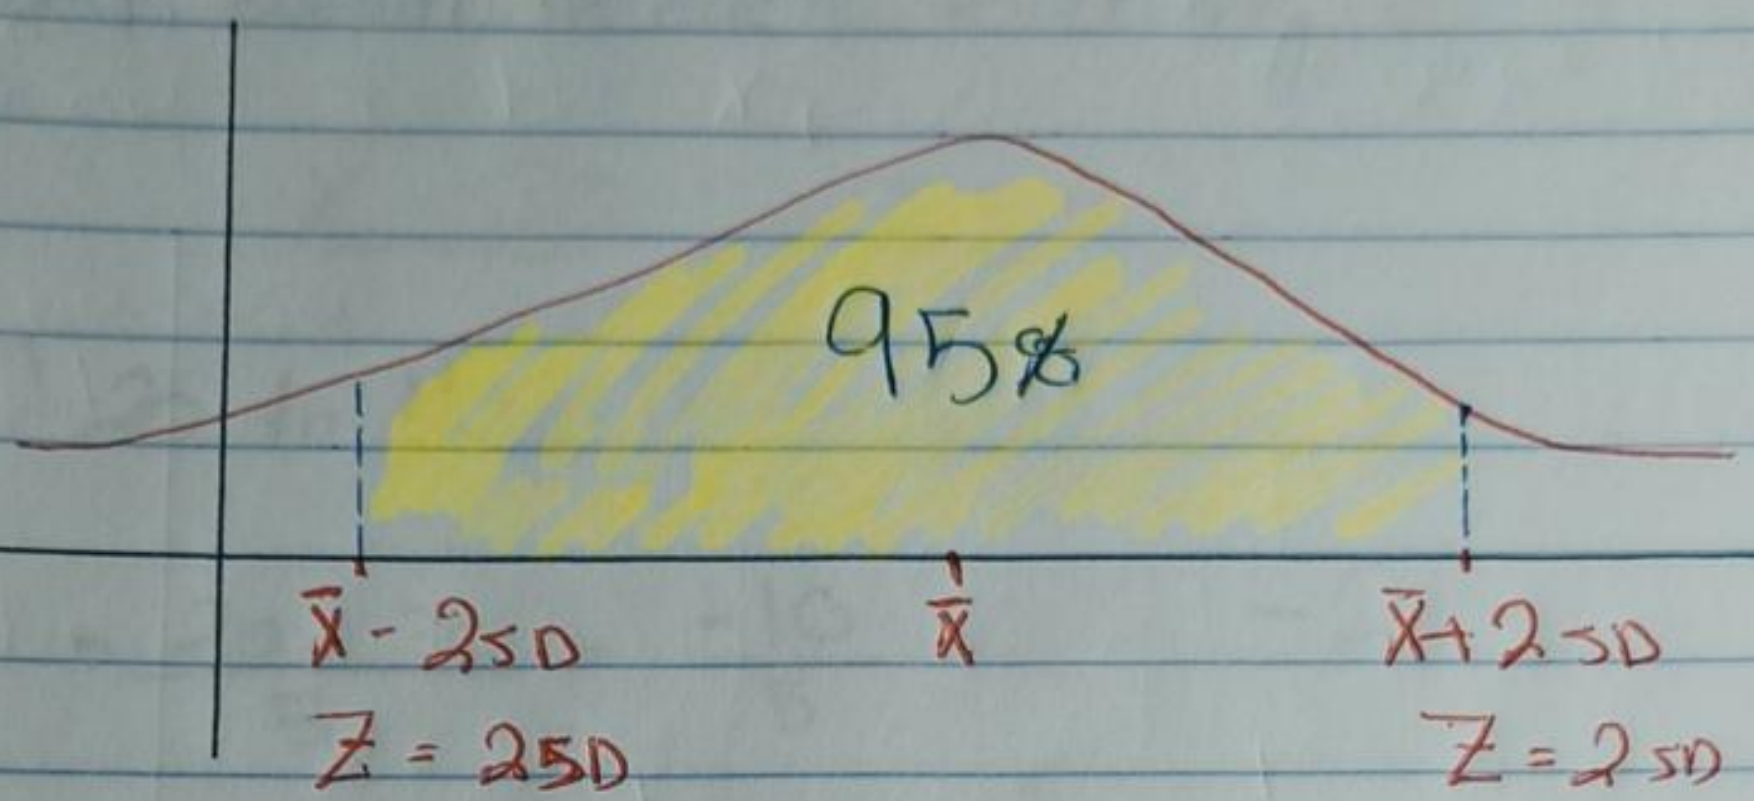 95%
x̄ - 2SD
x̄
x̄ + 2SD
Z = 2SD
Z = 2SD